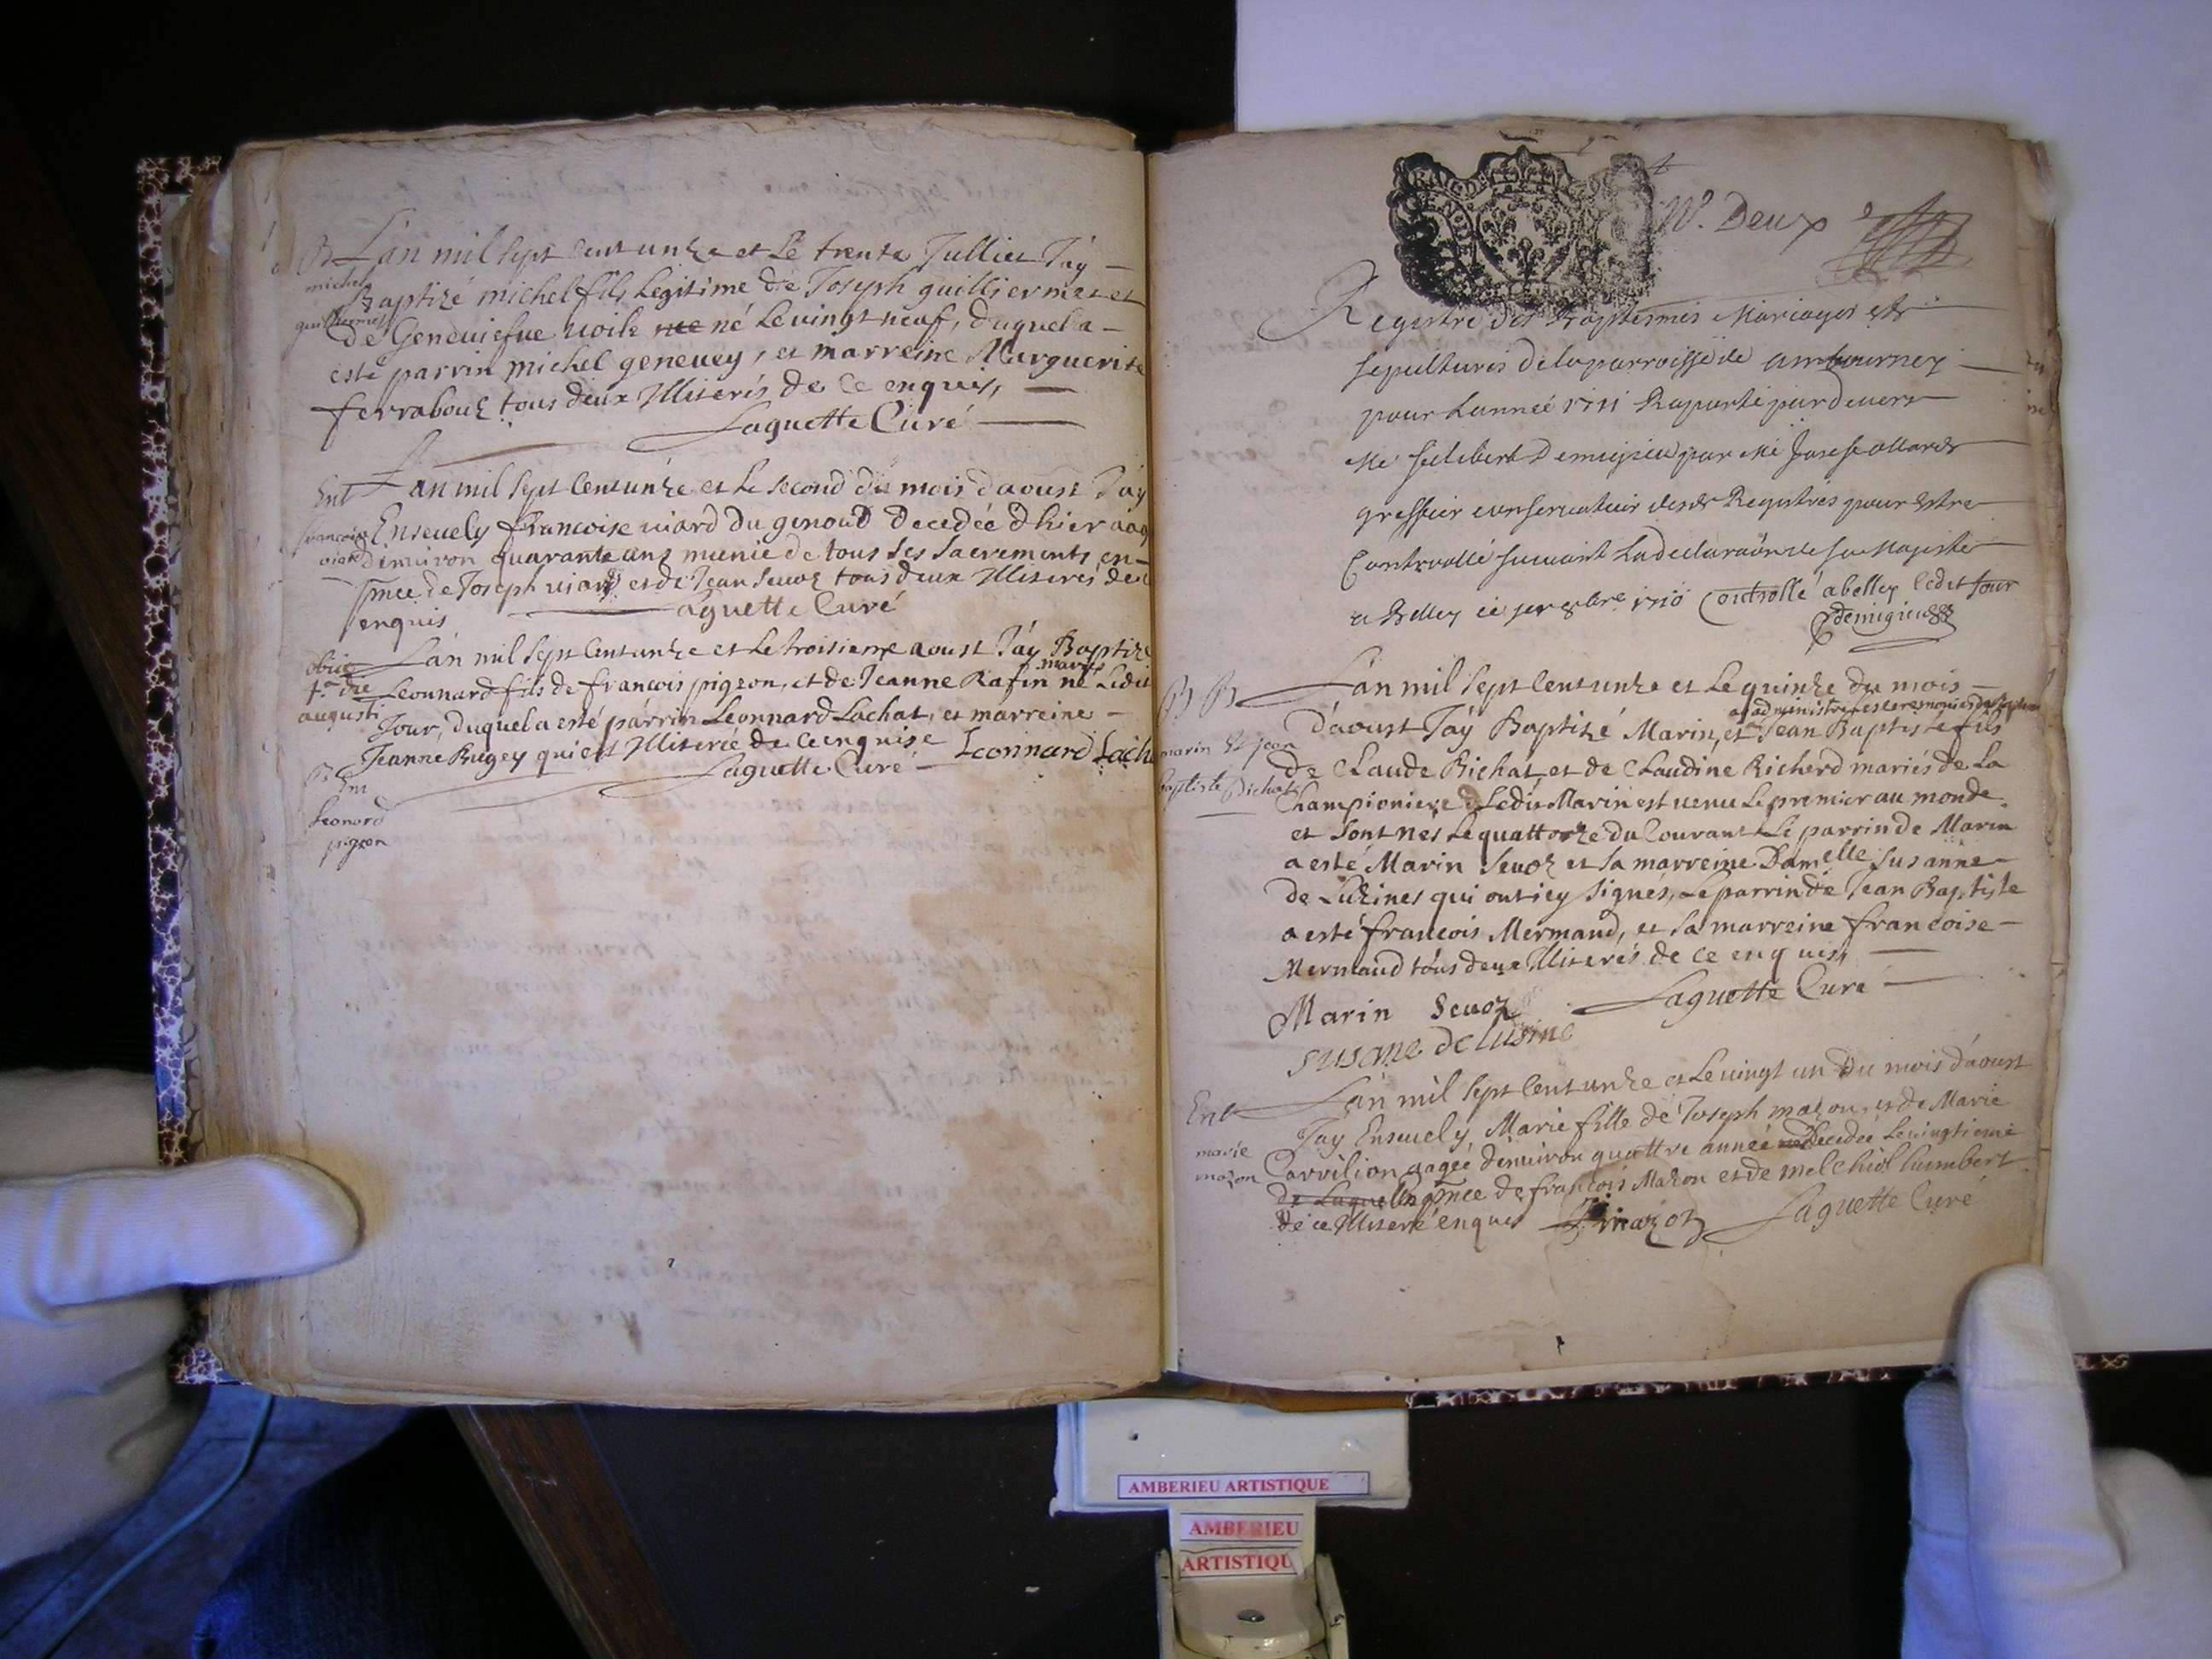 B Lan mil sept cent unze et le trente Julliet J'ay
michel
Baptizé michel fils legitime de Joseph guilliermet et
guilliermet
de Geneuiefue uoile né le uingt neuf, duquel a
esté parrin michel geneuey, et marreine Marguerite
ferrabouz tous deux Illiterés de ce enquis,
Laguette Curé
Ent Lan mil sept cent unze et le second du mois d'aoust J'ay
francoise Enseuely francoise uiard du genoud decedée d'hier aag
uiard d'enuiron quarante ans munie de tous ses sacrements, en
pnce de Joseph uiard et de Jean seuoz tous deux Illiterés de c
enquis Laguette Curé
obiit Lan mil sept cent unze et le troisieme aoust J'ay Baptizé
4a die Leonnard fils de francois pigeon, et de Jeanne Rafin mariés né ledit
augusti Jour, duquel a esté parrin Leonnard Lachat, et marreine
Jeanne Bugey qui est Illiterée de ce enquise Leonnard Lach
B Ent Laguette Curé
Leonard
pigeon
N°. Deux
Registre des Baptesmes Mariages et
sepultures de la parroisse de ambourney
pour Lannée 1711 Raporté par deuers
Me filibert Demigieu par Me Joseph allard
greffier conseruateur desd Registres pour estre
Controollé suiuant La declaraõn de sa Majesté
a Belley ce per 8bre 1710 Controllé a belley ledit Jour
Demigieu
B B Lan mil sept cent unze et le quinze du mois
d'aoust J'ay Baptizé Marin, et Jean Baptiste fils
marin et jean
de Claude Bichat et de Claudine Richerd mariés de La
baptiste Bichat
Championiere Ledit Marin est uenu le premier au monde
et sont nés le quattorze du Courant Le parrin de Marin
a esté Marin Seuoz et sa marreine Damelle Susanne
de Luzines qui ont icy signés, Le parrin de Jean Baptiste
a esté francois Mermand, et sa marreine francoise
Mermand tous deux Illiterés de ce enquis,
Marin Seuoz Laguette Curé
susane de lusine
Ent Lan mil sept cent unze et le uingt un du mois d'aoust
J'ay Enseuely, Marie fille de Joseph mazon, et de Marie
marie
Carrilion aagée d'enuiron quattre année decedée le uingtieme
mazon
de Laquelle pnce de francois Mazon et de melchiol humbert
de ce Illiteré enquis F. mazon Laguette Curé
AMBERIEU ARTISTIQUE
AMBERIEU
ARTISTIQU